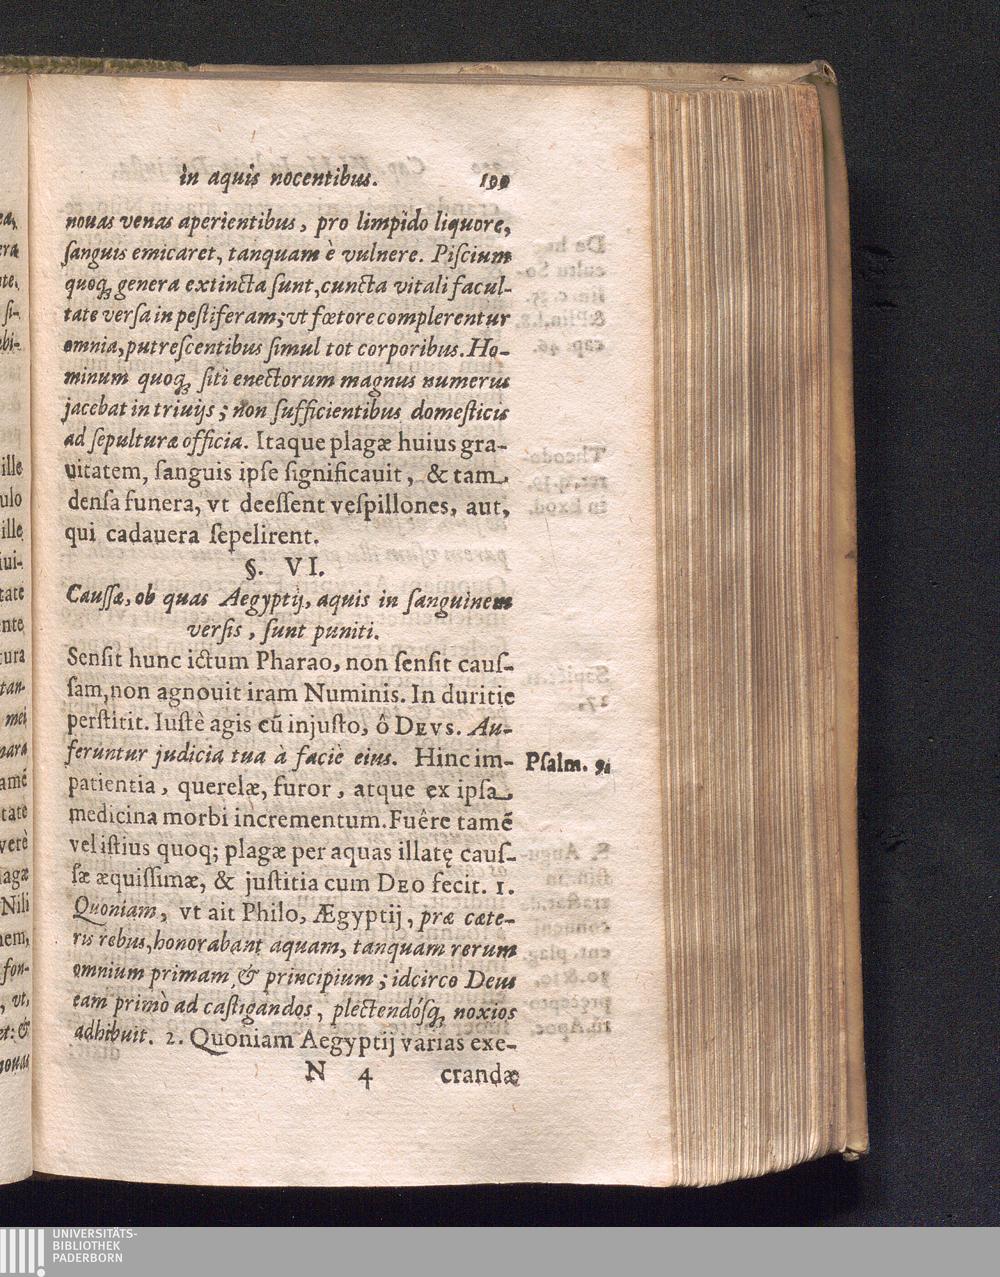 in aquis nocentibus. 199
nouas venas aperientibus, pro limpido liquore,
ſanguis emicaret, tanquam è vulnere. Piſcium
quoq; genera extincta ſunt, cuncta vitali facul-
tate verſa in peſtiferam; vt fœtore complerentur
omnia, putreſcentibus ſimul tot corporibus. Ho-
minum quoq; ſiti enectorum magnus numerus
jacebat in triuijs; non ſufficientibus domeſticis
ad ſepulturæ officia. Itaque plagæ huius gra-
uitatem, ſanguis ipſe ſignificauit, & tam
denſa funera, vt deeſſent veſpillones, aut,
qui cadauera ſepelirent.
§. VI.
Cauſſæ, ob quas Aegyptij, aquis in ſanguinem
verſis, ſunt puniti.
Senſit hunc ictum Pharao, non ſenſit cauſ-
ſam, non agnouit iram Numinis. In duritie
perſtitit. Iuſtè agis cū injuſto, ô DEVS. Au-
feruntur judicia tua à faciè eius. Hinc im-
Pſalm. 9.
patientia, querelæ, furor, atque ex ipſa
medicina morbi incrementum. Fuêre tamē
vel iſtius quoq; plagæ per aquas illatę cauſ-
ſæ æquiſſimæ, & juſtitia cum DEO fecit. 1.
Quoniam, vt ait Philo, Ægyptij, præ cæte-
ris rebus, honorabant aquam, tanquam rerum
omnium primam, & principium; idcirco Deus
eam primò ad caſtigandos, plectendóſq; noxios
adhibuit. 2. Quoniam Aegyptij varias exe-
N 4 crandæ
UNIVERSITÄTS-
BIBLIOTHEK
PADERBORN